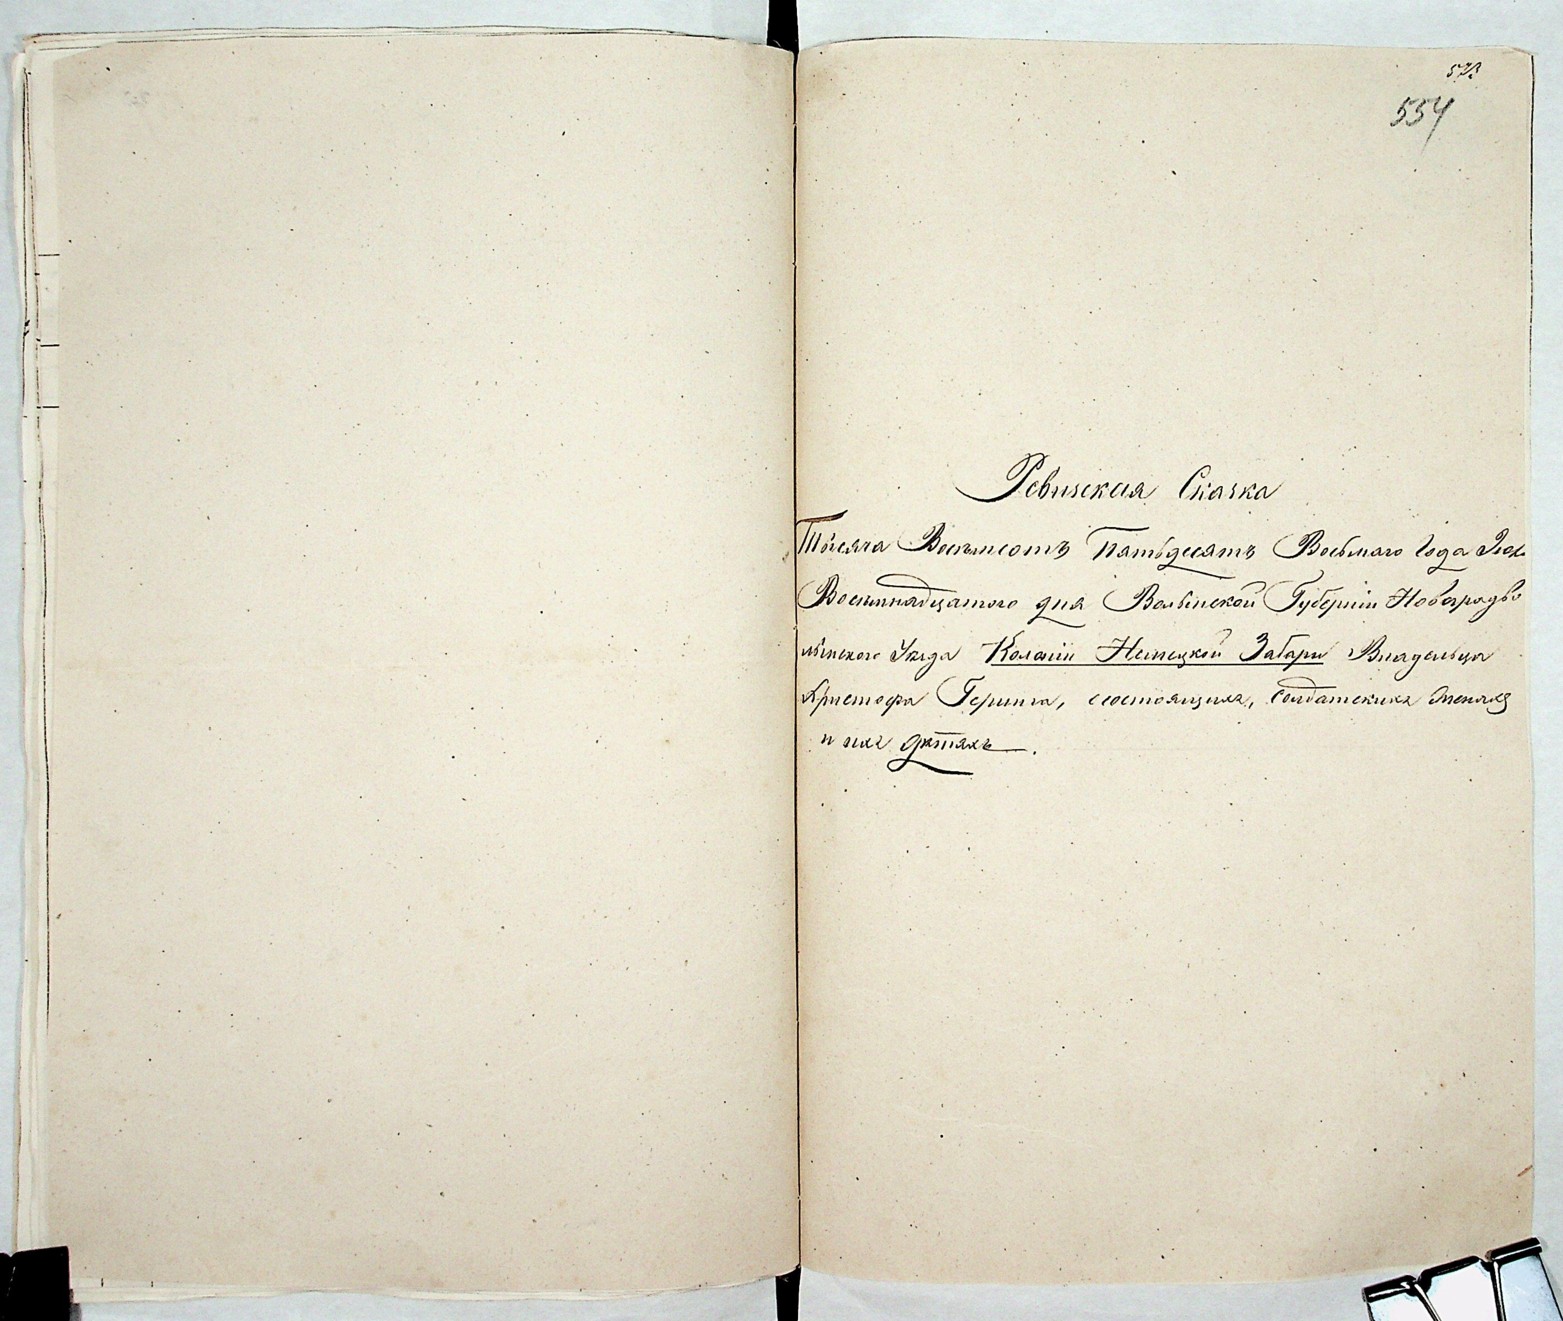 554
Ревизская Сказка
Тысяча Восемьсотъ Пятьдесятъ Восьмаго Года
Восемнадцатого дня Волынской Губерніи Новоградво
лынского Уезда Колоніи Немецкой Забары Владельца
Христофа Геринга, состоящихъ, солдатскихъ женахъ
и ихъ детяхъ.